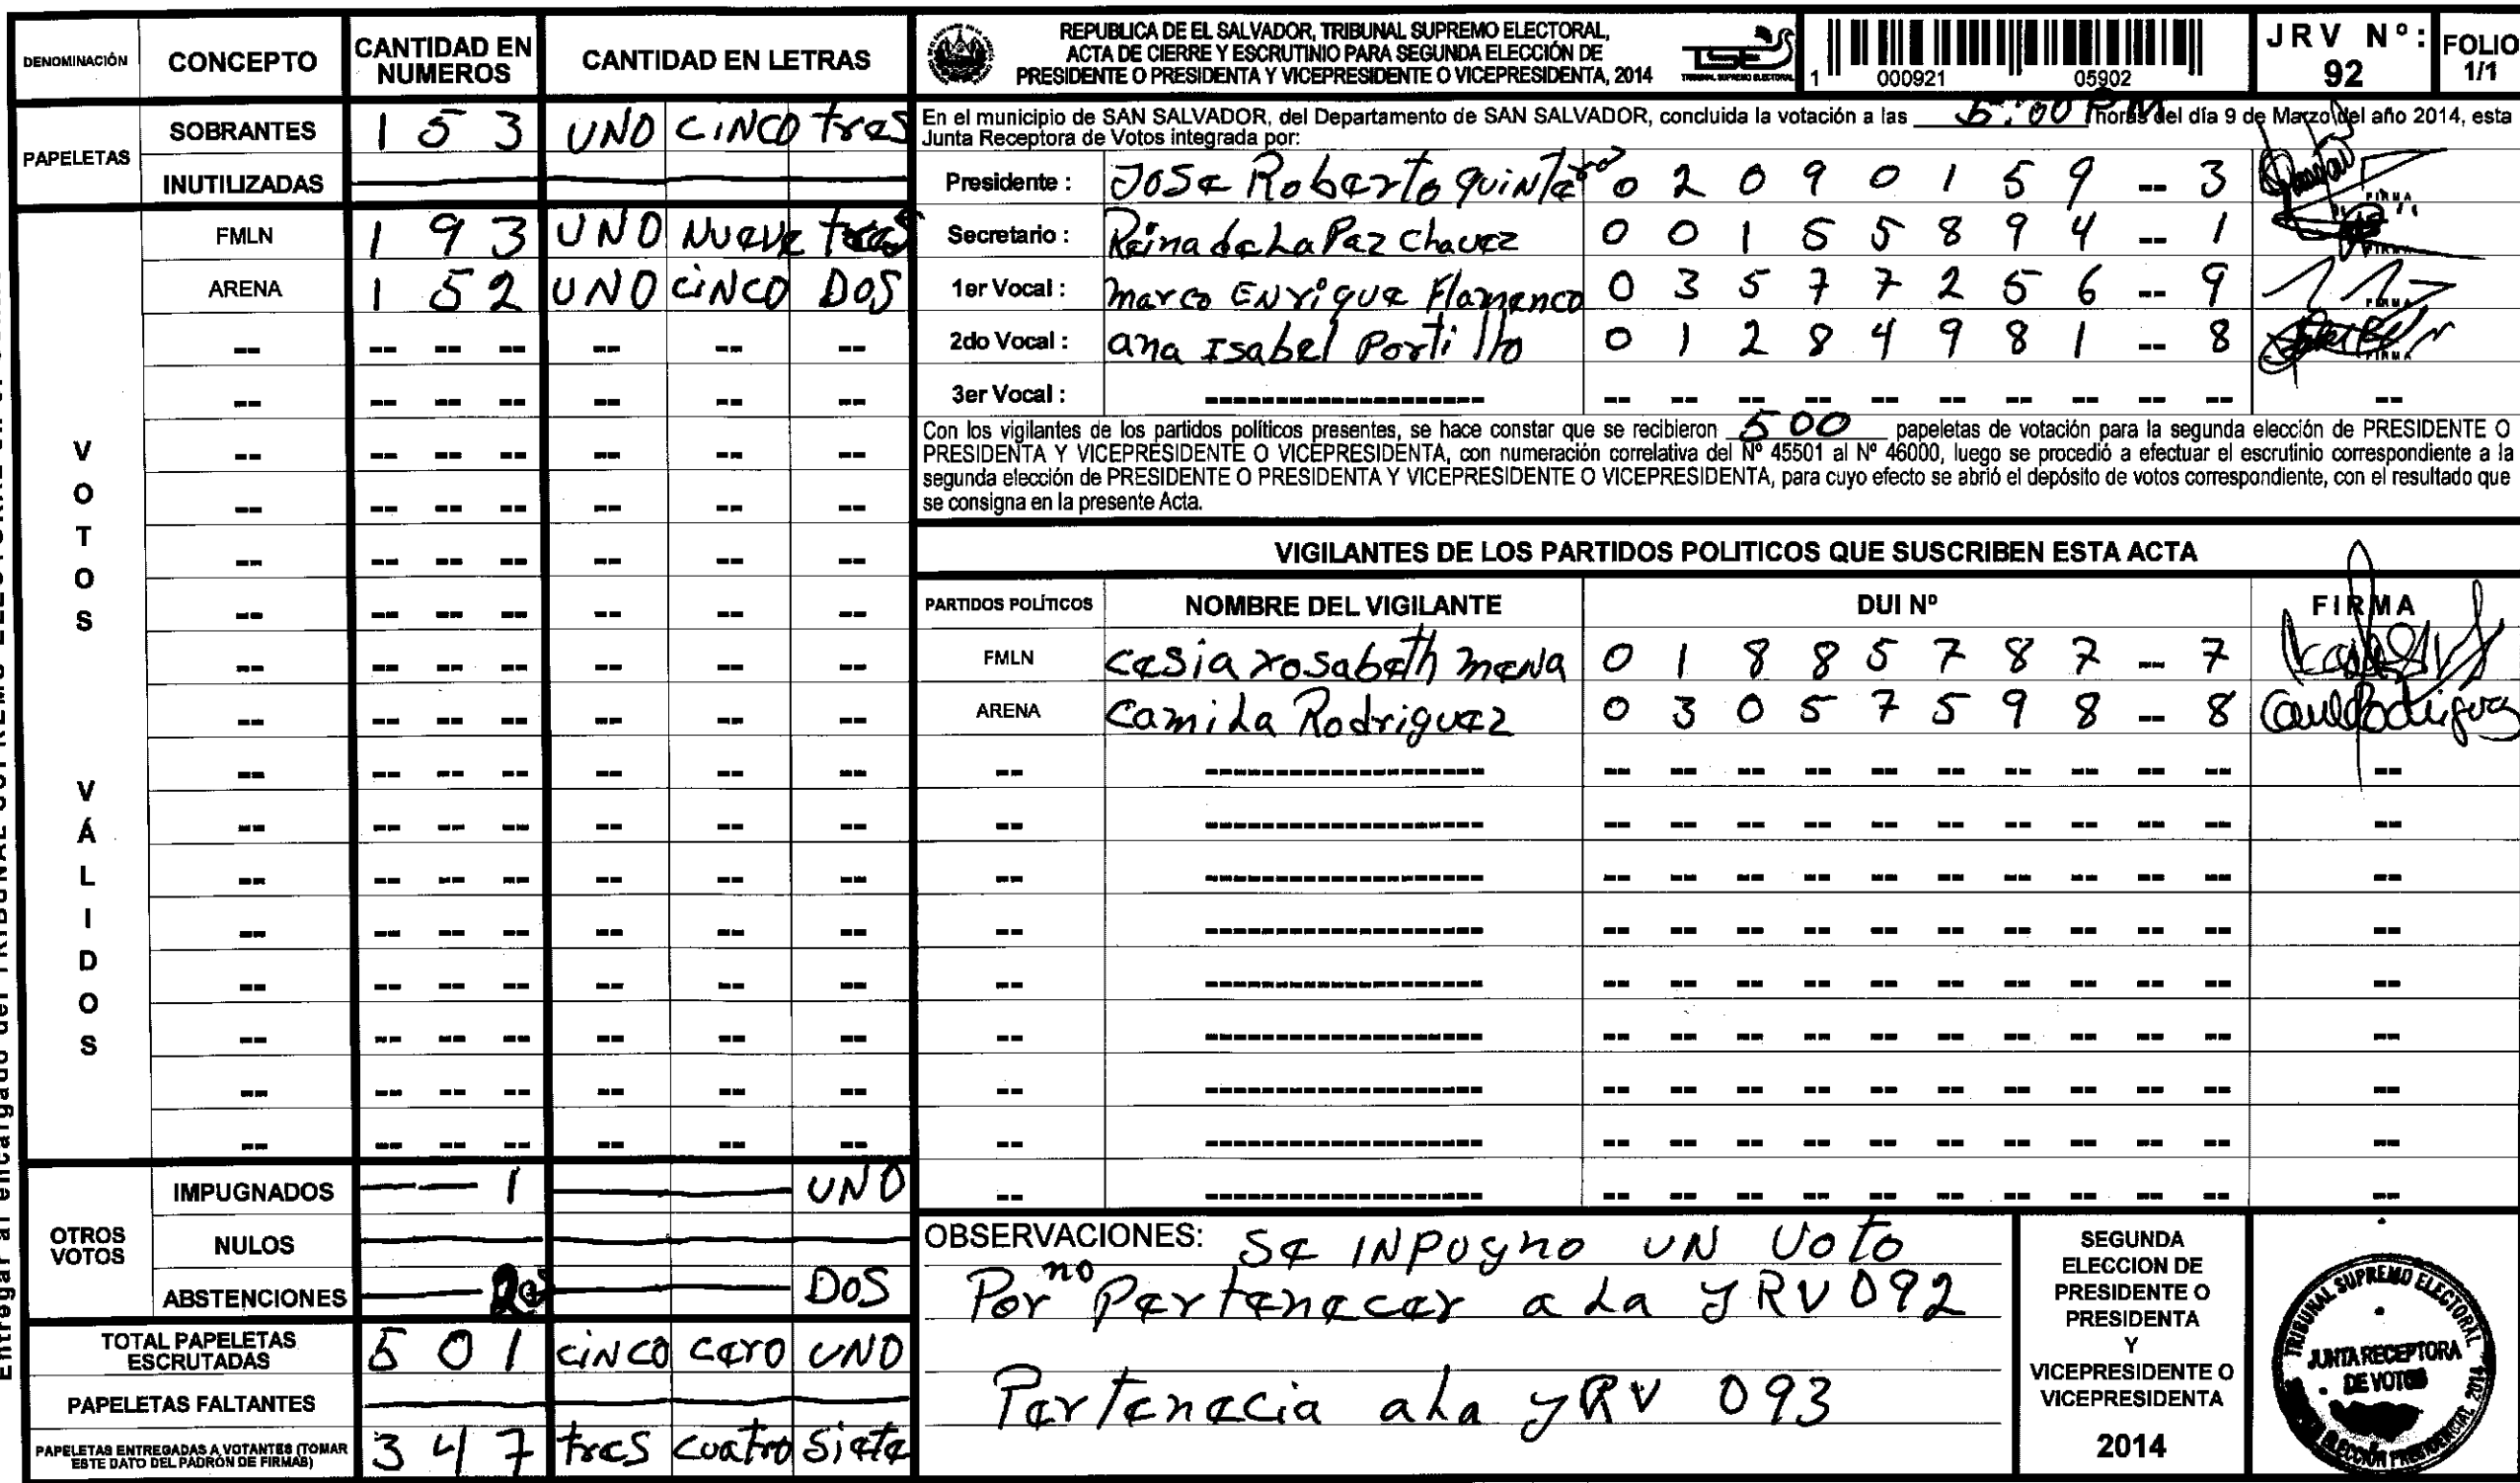 DENOMINACIÓN CONCEPTO CANTIDAD EN NUMEROS CANTIDAD EN LETRAS
PAPELETAS
SOBRANTES 1 5 3 UNO CINCO tres
INUTILIZADAS
VOTOS VÁLIDOS
FMLN 1 9 3 UNO Nueve tres
ARENA 1 5 2 UNO CINCO DOS
OTROS VOTOS
IMPUGNADOS 1 UNO
NULOS
ABSTENCIONES DOS
TOTAL PAPELETAS ESCRUTADAS 5 0 1 CINCO cero UNO
PAPELETAS FALTANTES
PAPELETAS ENTREGADAS A VOTANTES (TOMAR ESTE DATO DEL PADRÓN DE FIRMAS) 3 4 7 tres cuatro Siete
REPUBLICA DE EL SALVADOR, TRIBUNAL SUPREMO ELECTORAL,
ACTA DE CIERRE Y ESCRUTINIO PARA SEGUNDA ELECCIÓN DE
PRESIDENTE O PRESIDENTA Y VICEPRESIDENTE O VICEPRESIDENTA, 2014
TSE
TRIBUNAL SUPREMO ELECTORAL
1 000921 05902
JRV Nº: 92
FOLIO 1/1
En el municipio de SAN SALVADOR, del Departamento de SAN SALVADOR, concluida la votación a las 5:00 PM horas del día 9 de Marzo del año 2014, esta
Junta Receptora de Votos integrada por:
Presidente : Jose Roberto Quintero 0 2 0 9 0 1 5 9 -- 3
Secretario : Reina de La Paz Chavez 0 0 1 5 5 8 9 4 -- 1 FIRMA
1er Vocal : Marco Enrique Flamenco 0 3 5 7 7 2 5 6 -- 9 FIRMA
2do Vocal : Ana Isabel Portillo 0 1 2 8 4 9 8 1 -- 8 FIRMA
3er Vocal :
Con los vigilantes de los partidos políticos presentes, se hace constar que se recibieron 500 papeletas de votación para la segunda elección de PRESIDENTE O
PRESIDENTA Y VICEPRESIDENTE O VICEPRESIDENTA, con numeración correlativa del Nº 45501 al Nº 46000, luego se procedió a efectuar el escrutinio correspondiente a la
segunda elección de PRESIDENTE O PRESIDENTA Y VICEPRESIDENTE O VICEPRESIDENTA, para cuyo efecto se abrió el depósito de votos correspondiente, con el resultado que
se consigna en la presente Acta.
VIGILANTES DE LOS PARTIDOS POLITICOS QUE SUSCRIBEN ESTA ACTA
PARTIDOS POLÍTICOS NOMBRE DEL VIGILANTE DUI Nº FIRMA
FMLN Cesia rosabeth mena 0 1 8 8 5 7 8 7 -- 7
ARENA Camila Rodriguez 0 3 0 5 7 5 9 8 -- 8
OBSERVACIONES: Se INpugno UN Voto
Por no Pertenecer a La JRV 092
Pertenecia a La JRV 093
SEGUNDA
ELECCION DE
PRESIDENTE O
PRESIDENTA
Y
VICEPRESIDENTE O
VICEPRESIDENTA
2014
TRIBUNAL SUPREMO ELECTORAL
JUNTA RECEPTORA
DE VOTOS